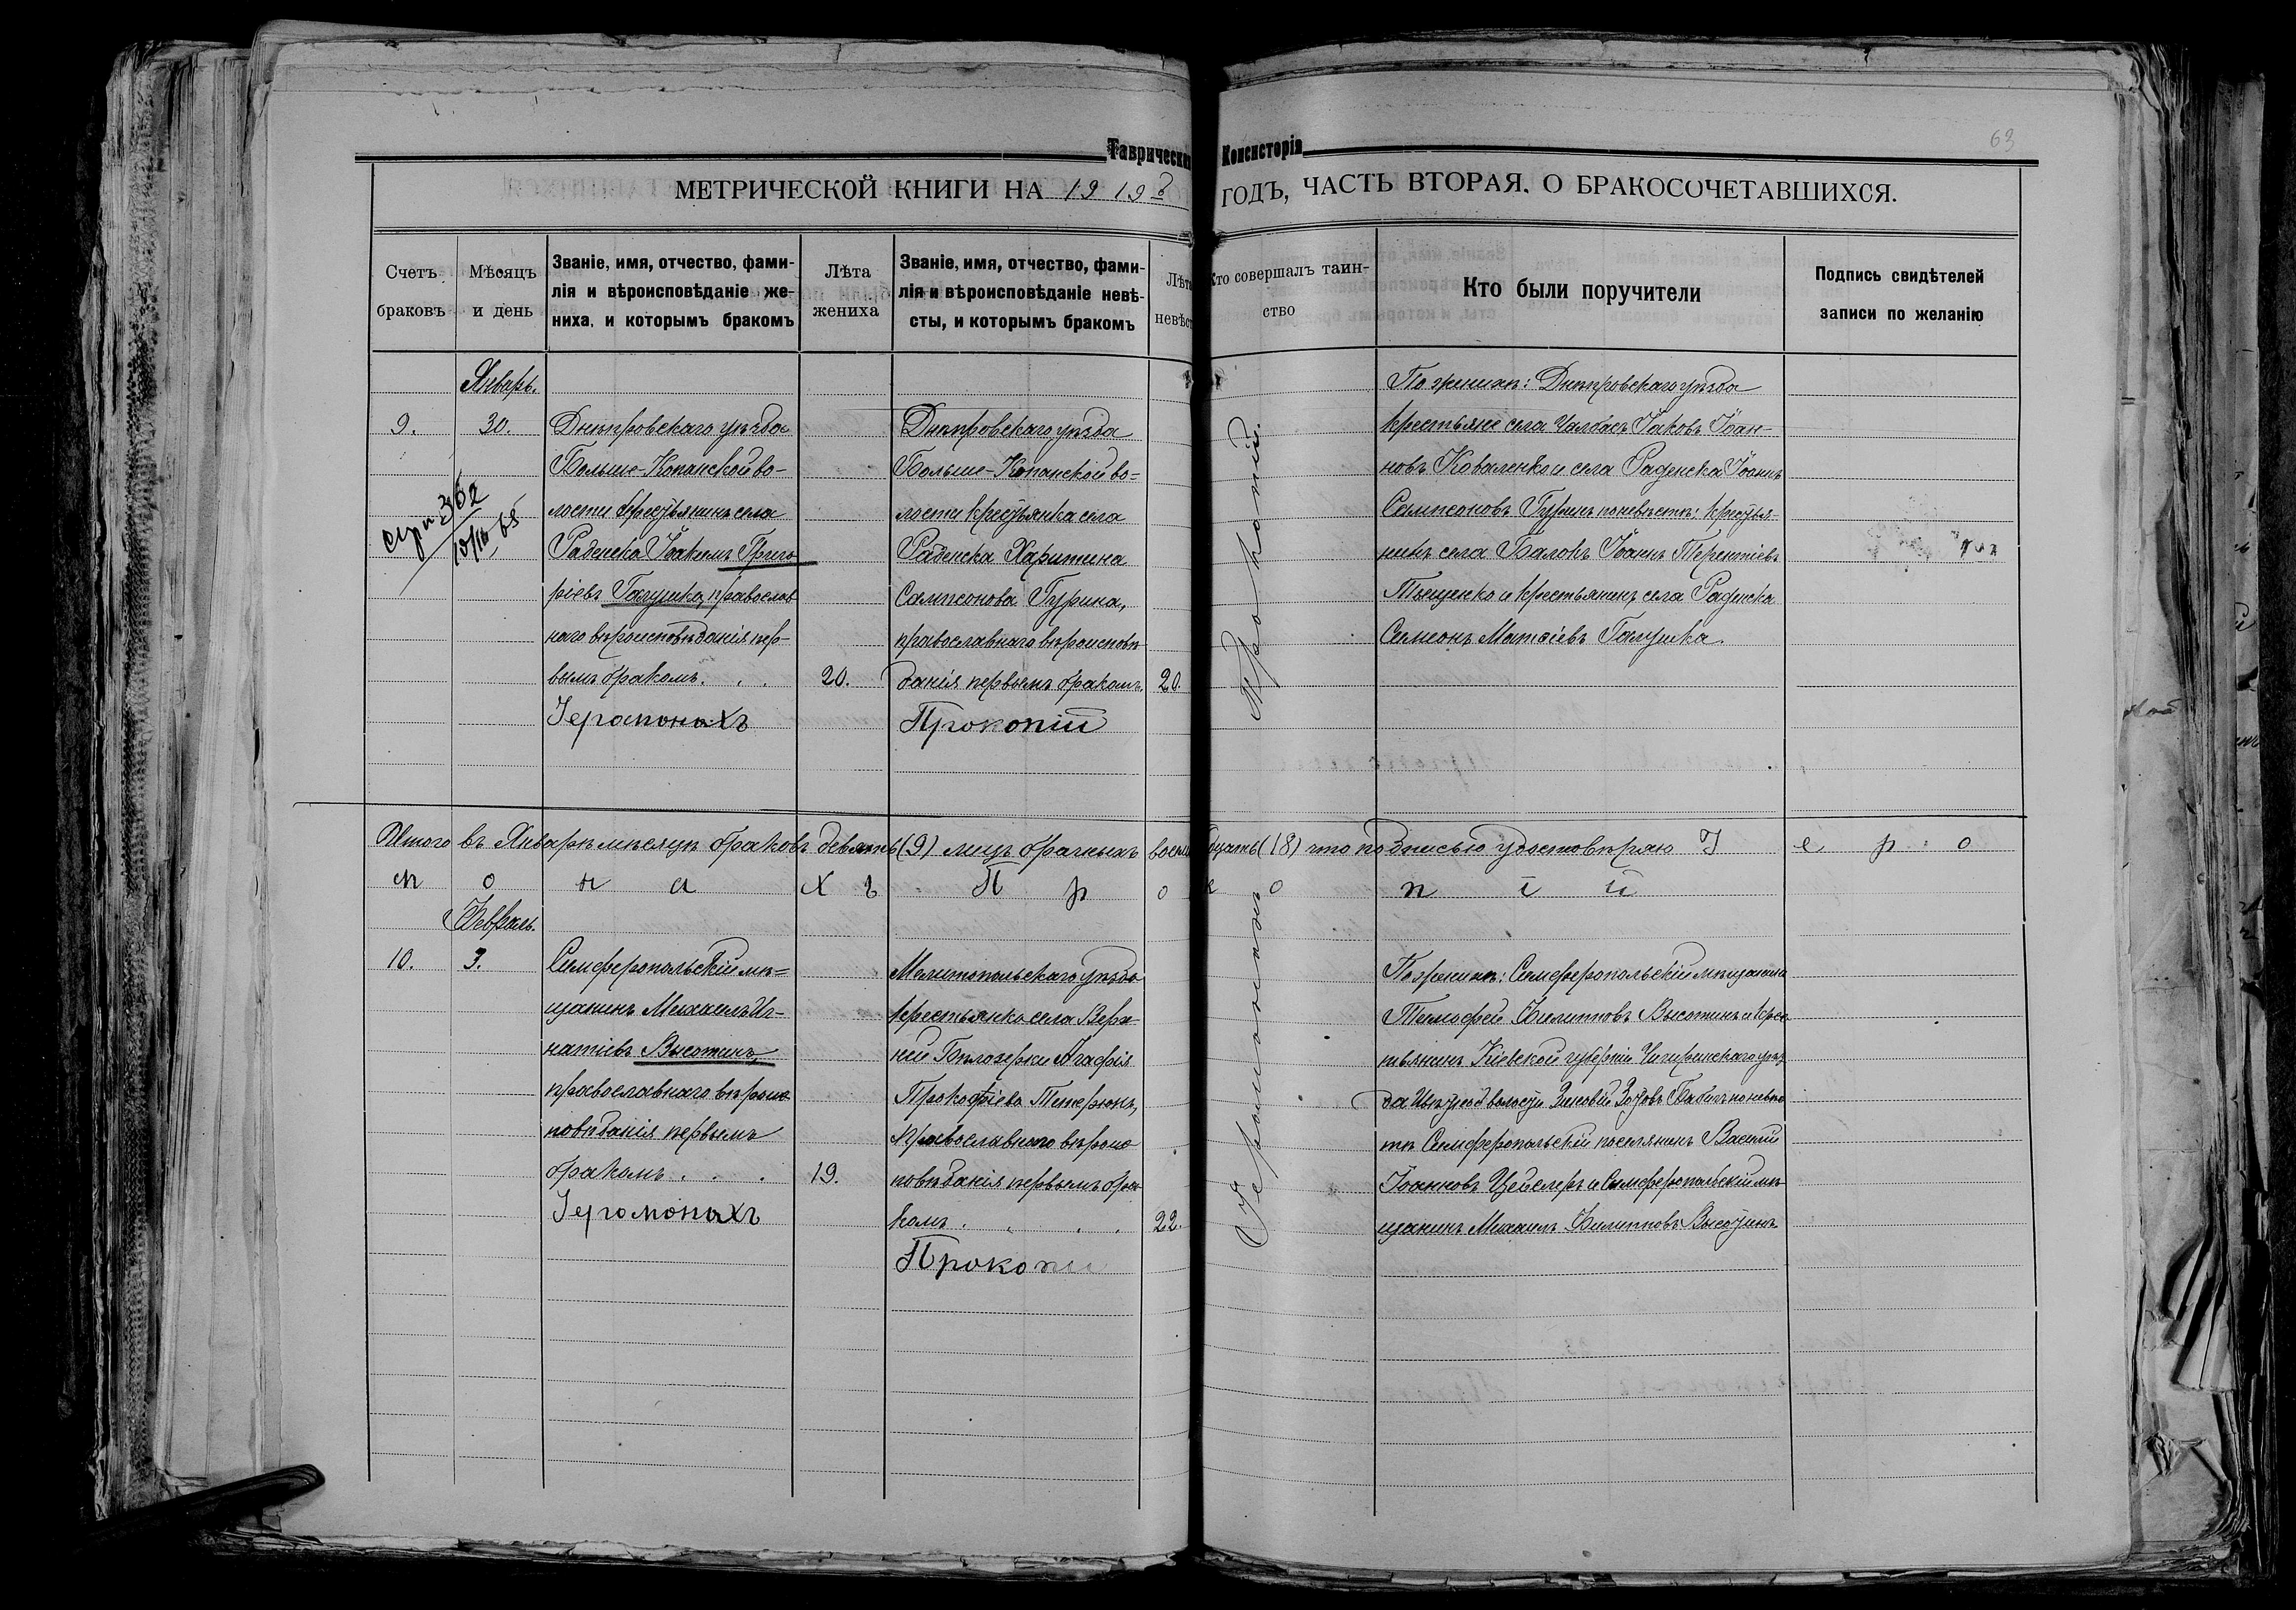 Таврическая Консисторія
63
МЕТРИЧЕСКОЙ КНИГИ НА 1919 ГОДЪ, ЧАСТЬ ВТОРАЯ, О БРАКОСОЧЕТАВШИХСЯ.
Счетъ браковъ
Мѣсяцъ и день
Званіе, имя, отчество, фами-
лія и вѣроисповѣданіе же-
ниха, и которымъ бракомъ
Лѣта жениха
Званіе, имя, отчество, фами-
лія и вѣроисповѣданіе невѣ-
сты, и которымъ бракомъ
Лѣта невѣсты
Кто совершалъ таин-
ство
Кто были поручители
Подпись свидѣтелей
записи по желанію
Январь.
9.
30.
Днѣпровскаго уѣзда
Больше-Копанской во-
лости крестьянинъ села
Раденска Іоакимъ Григо
ріевъ Галушка, православ
наго вѣроисповѣданія пер-
вымъ бракомъ. . .
20.
Іеромонахъ
Днѣпровскаго уѣзда
Больше-Копанской во-
лости крестьянка села
Раденска Харитина
Сампсонова Гурина,
православнаго вѣроисповѣ
данія первымъ бракомъ.
20.
Прокопій
По женихѣ: Днѣпровскаго уѣзда
крестьяне села Чалбасъ Іаковъ Іоан-
новъ Коваленко и села Раденска Іоаннъ
Сампсоновъ Гуринъ по невѣстѣ: крестья-
нинъ села Іоаннъ Терентіевъ
Тищенко и крестьянинъ села Раденска
Симеонъ Матѳіевъ Галушка.
Итого въ Январѣ мѣсяцѣ браковъ девять (9) лицъ брачныхъ восемнадцать (18) что подписью удостовѣряю І е р о
м о н а х ъ П р о к о п і й
Февраль.
10.
3.
Симферопольскій мѣ-
щанинъ Михаилъ Иг-
натіевъ Высотинъ,
православнаго вѣроис
повѣданія первымъ
бракомъ. . . .
19.
Іеромонахъ
Мелитопольскаго уѣзда
крестьянка села Верх-
ній Бѣлозерки Агафія
Прокофіева Тетерюкъ,
православнаго вѣроис
повѣданія первымъ бра
комъ. . . .
22.
Прокопій
Іеромонахъ Прокопій.
По женихѣ: Симферопольскій мѣщанинъ
Тимофей Филипповъ Высотинъ и крес
тьянинъ Кіевской губерніи Чигиринскаго уѣз
да волости Зотовъ Бабичъ по невѣс
тѣ Симферопольскій поселянинъ Василій
Іоанновъ Цейслеръ и Симферопольскій мѣ
щанинъ Михаилъ Филипповъ Высотинъ